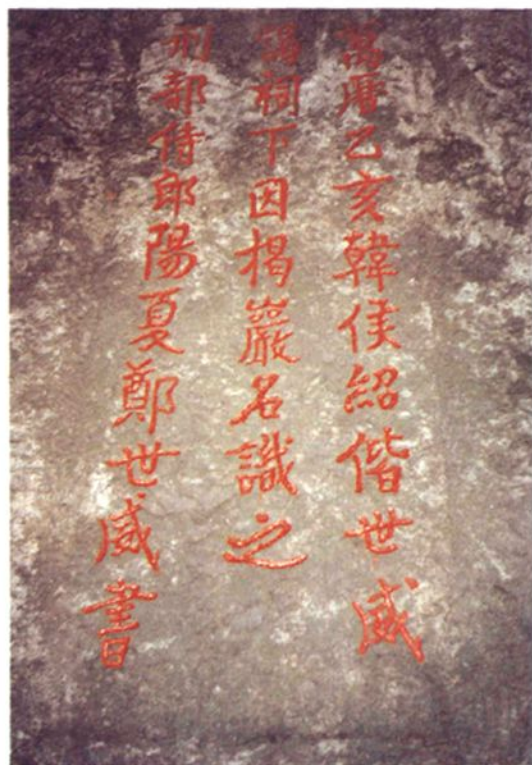 萬曆乙亥韓侯紹偕世威
謁祠下因楬巖名識之
刑部侍郎陽夏鄭世威書